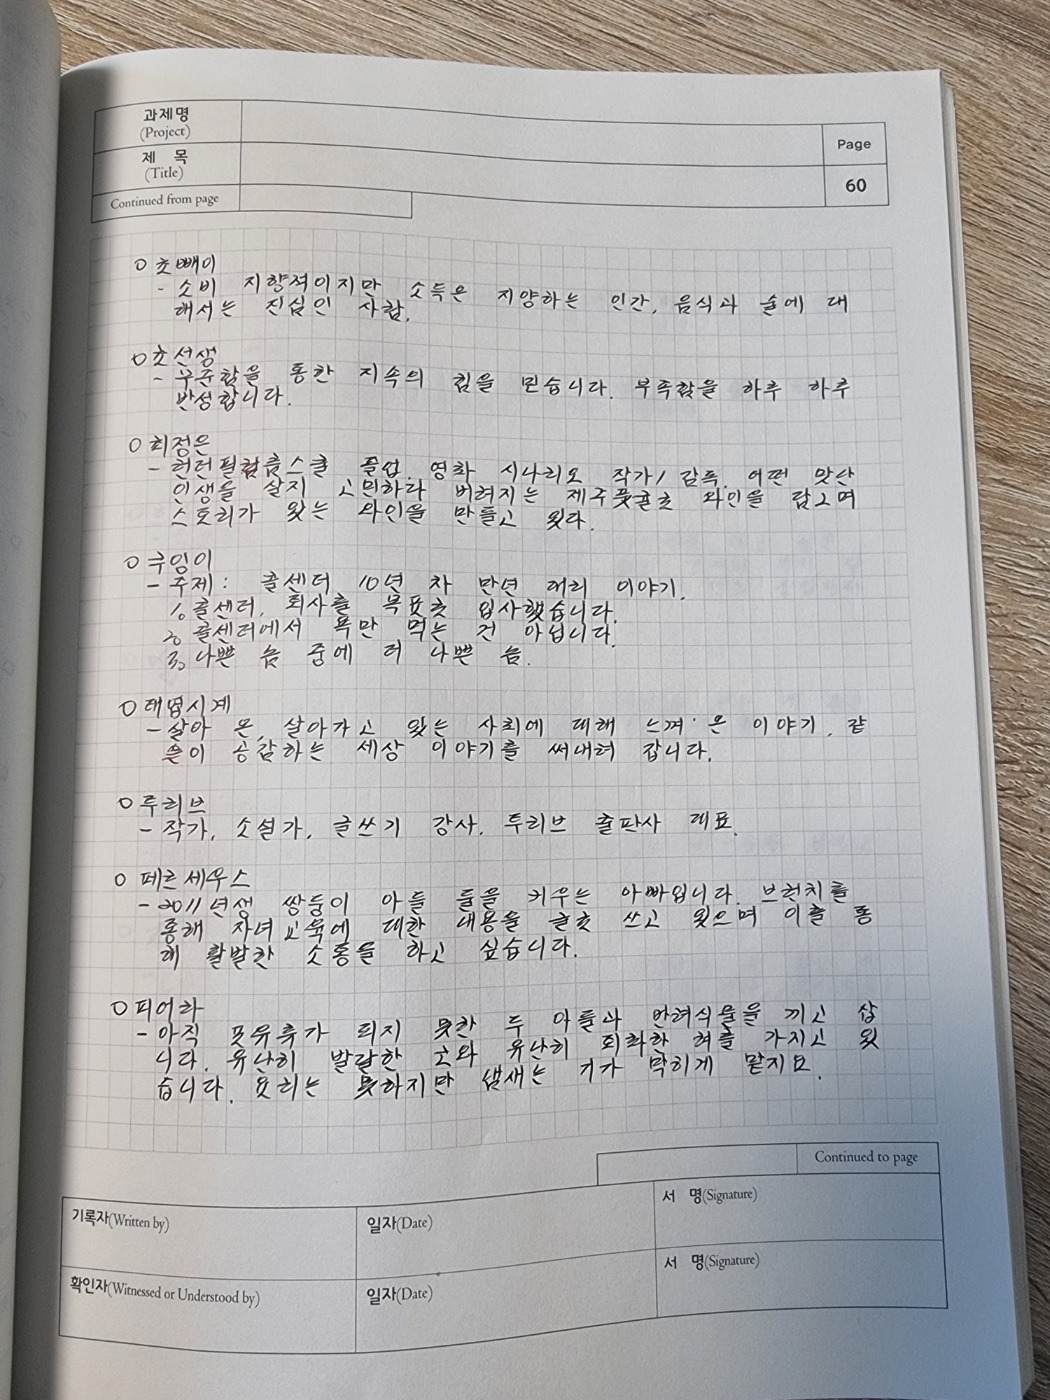 과제명
(Project)
제 목
(Title)
Continued from page
Page
60
○ 초빼이
- 소비 지향적이지만 소득은 지양하는 인간. 음식과 술에 대
해서는 진심인 사람.
○ 초선생
- 꾸준함을 통한 지속의 힘을 믿습니다. 부족함을 하루 하루
반성합니다.
○ 최정은
- 런던필름스쿨 졸업. 영화 시나리오 작가/감독. 어떤 맛난
인생을 살지 고민하다 버려지는 제주 귤로 와인을 담그며
스토리가 있는 와인을 만들고 있다.
- 주제: 콜센터 10년 차 만년 대리 이야기.
1. 콜센터, 퇴사를 목표로 입사했습니다.
2. 콜센터에서 욕만 먹는 건 아닙니다.
3. 나쁜 놈 중에 더 나쁜 놈.
○ 태엽시계
- 살아 온, 살아가고 있는 사회에 대해 느껴 온 이야기. 같
은이 공감하는 세상 이야기를 써내려 갑니다.
○ 투리브
- 작가, 소설가, 글쓰기 강사, 투리브 출판사 대표.
○ 페르세우스
- 2011년생 쌍둥이 아들 둘을 키우는 아빠입니다. 브런치를
통해 자녀교육에 대한 내용을 글로 쓰고 있으며 이를 통
해 활발한 소통을 하고 싶습니다.
○ 피어라
- 아직 못유류가 되지 못한 두 아들과 반려식물을 끼고 삽
니다. 유난히 발달한 코와 유난히 퇴화한 혀를 가지고 있
습니다. 요리는 못하지만 냄새는 기가 막히게 맡지요.
Continued to page
기록자(Written by)
일자(Date)
서 명(Signature)
확인자(Witnessed or Understood by)
일자(Date)
서 명(Signature)